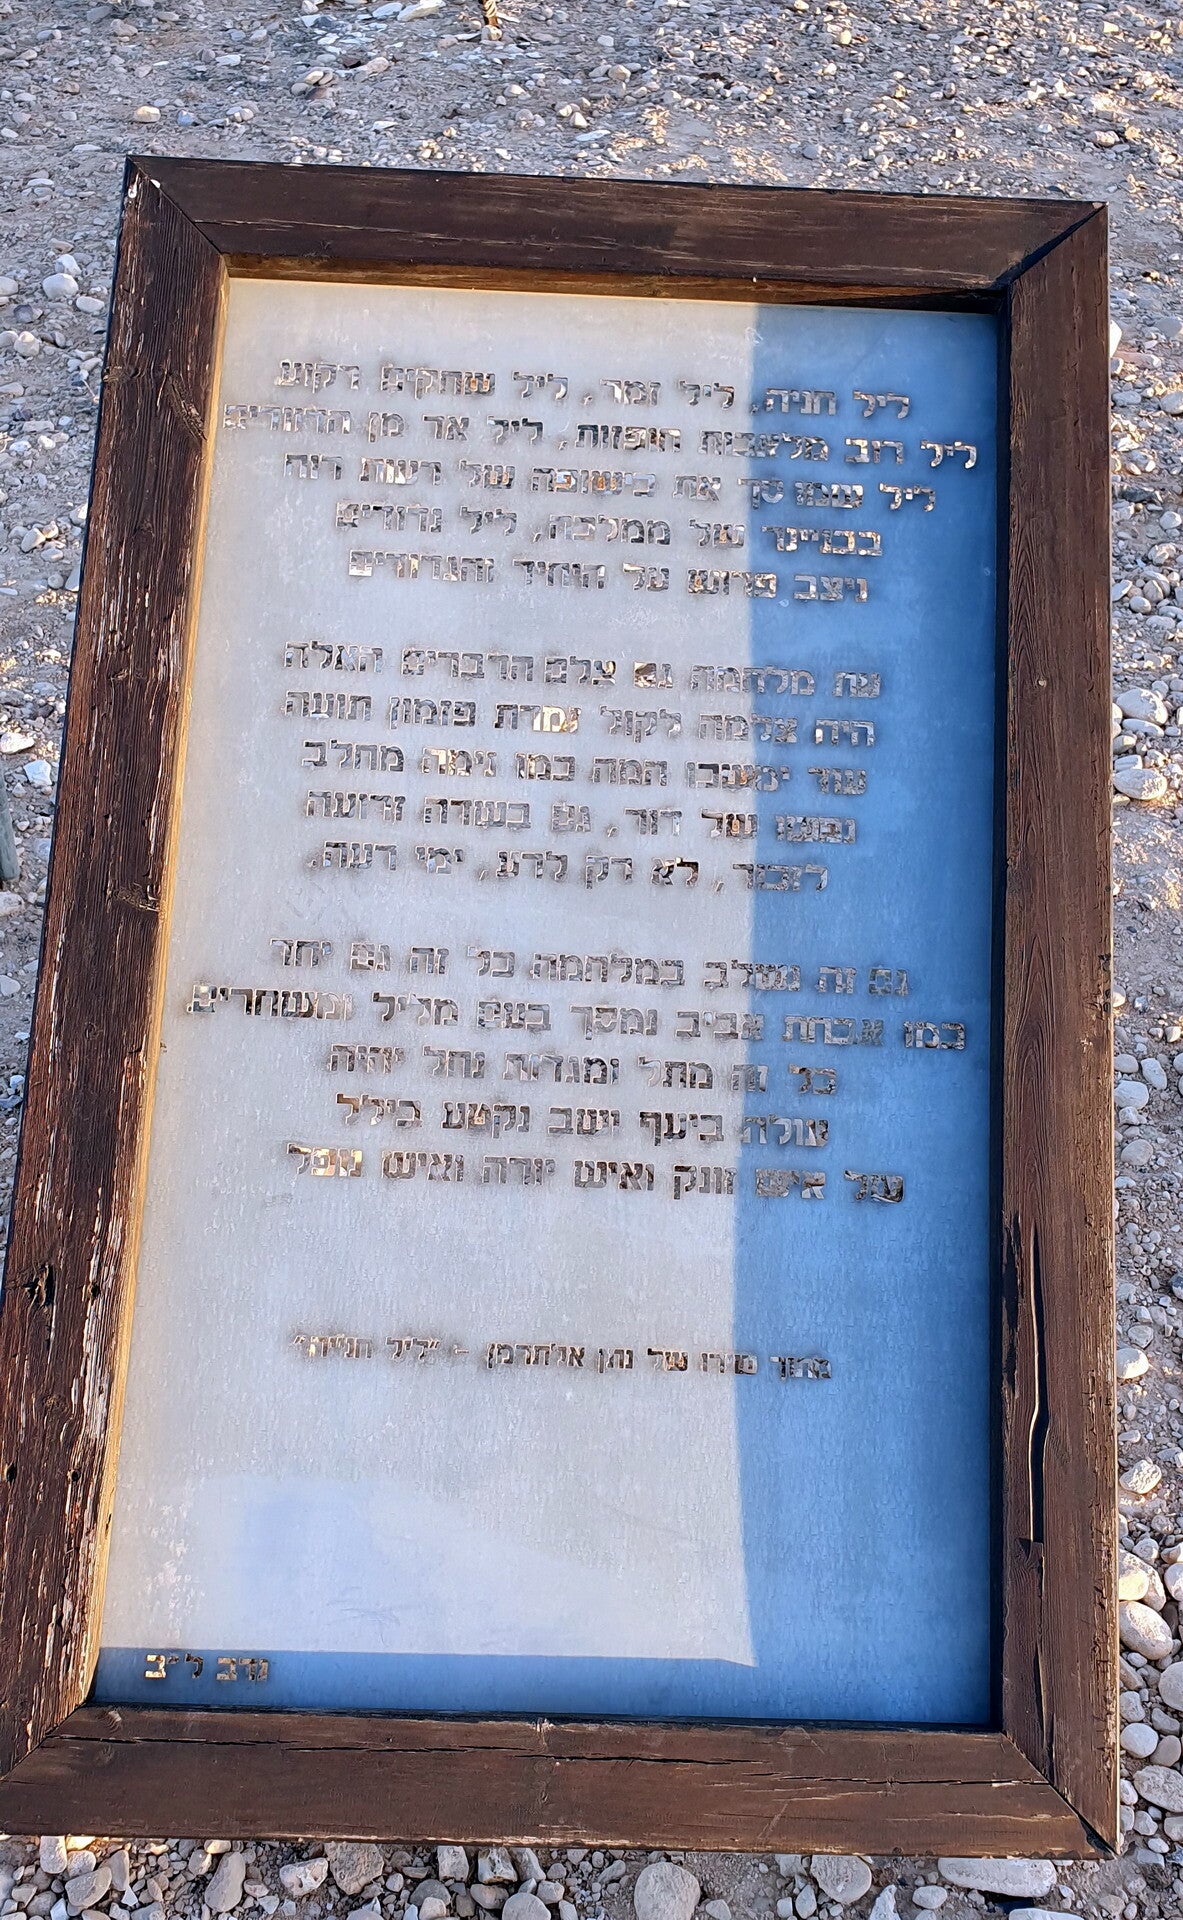 ליל חניה, ליל זמר, ליל שחקים רקוע
ליל רוב מלאכות חופזות, ליל אד מן הדוודים
ליל שמוסך את כישופה של רעות רוח
בבניינה של ממלכה, ליל נדודים
ניצב פרוש על היחיד והגדודים
עת מלחמה גם צלם הדברים האלה
היה צלמה לקול זמרת פזמון תועה
עוד ימשכו המה כמו נימה מחלב
נפשו של דור, גם בשדה זרועה
לזכור, לא רק לרע, ימי רעה,
גם זה נשלב במלחמה כל זה גם יחד
כמו אבחת אביב נמסך בעם מליל ומשחרים,
כל זה מתל ומגדות נחל יהיה
עולה ביעף וישב נקטע ביליל
על איש זונק ואיש יורה ואיש נופל
מתוך שירו של נתן אלתרמן - "ליל חניה"
נדב ליב